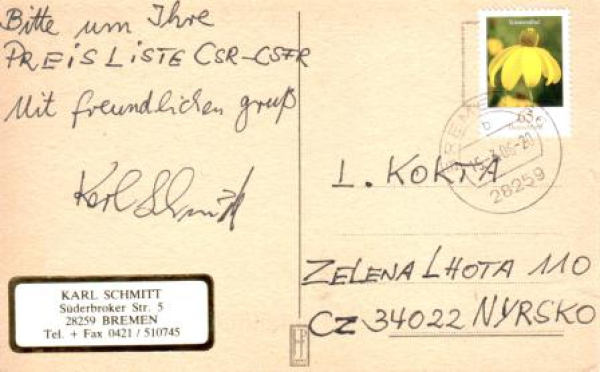 Bitte um Ihre
PREISLISTE CSR-CSFR
Mit freundlichen gruß
Karl Schmitt
KARL SCHMITT
Süderbroker Str. 5
28259 BREMEN
Tel. + Fax 0421 / 510745
Sonnenhut
65
Deutschland
BREMEN
b
-3.06-20
28259
L. KOKTA
ZELENA LHOTA 110
CZ 34022 NYRSKO